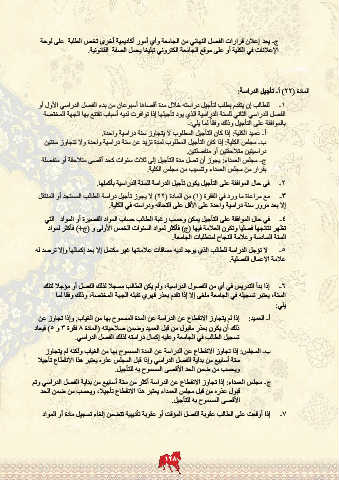 ج- يعد إعلان قرارات الفصل النهائي من الجامعة وأي أمور أكاديمية أخرى تخص الطلبة على لوحة
الإعلانات في الكلية أو على موقع الجامعة الكتروني تبليغا يحمل الصفة القانونية.
المادة (٢٢) أ- تأجيل الدراسة:
١. للطالب أن يتقدم بطلب لتأجيل دراسته خلال مدة أقصاها أسبوعان من بدء الفصل الدراسي الأول أو
الفصل الدراسي الثاني للسنة الدراسية الذي يود تأجيلها إذا توافرت لديه أسباب تقتنع بها الجهة المختصة
بالموافقة على التأجيل وذلك وفقاً لما يلي:-
أ- عميد الكلية: إذا كان التأجيل المطلوب لا يتجاوز سنة دراسية واحدة.
ب- مجلس الكلية: إذا كان التأجيل المطلوب لمدة تزيد عن سنة دراسية واحدة ولا تتجاوز سنتين
دراسيتين متلاحقتين أو منفصلتين.
ج- مجلس العمداء: يجوز أن تصل مدة التأجيل إلى ثلاث سنوات كحد أقصى متلاحقة أو منفصلة
بقرار من مجلس العمداء وتنسيب من مجلس الكلية.
٢. في حال الموافقة على التأجيل يكون تأجيل الدراسة للسنة الدراسية بأكملها.
٣. مع مراعاة ما ورد في الفقرة (١) من المادة (٢٢) لا يجوز تأجيل دراسة الطالب المستجد أو المنتقل
إلا بعد مرور سنة دراسية واحدة على الأقل على التحاقه ودراسته في الكلية.
٤. في حال الموافقة على التأجيل يمكن وحسب رغبة الطالب حساب المواد القصيرة أو المواد التي
تظهر نتائجها فصليا وتكون العلامة فيها (ج) فأكثر لمواد السنوات الخمس الأولى و (ج+) فأكثر لمواد
السنة السادسة وعلامة النجاح لمتطلبات الجامعة.
٥. لا تؤجل الدراسة للطالب الذي يوجد لديه مساقات علاماتها غير مكتمل إلا بعد إكمالها وإلا ترصد له
علامة الأعمال الفصلية.
٦. إذا بدأ التدريس في أي من الفصول الدراسية، ولم يكن الطالب مسجلا لذلك الفصل أو مؤجلا لتلك
السنة، يعتبر تسجيله في الجامعة ملغى إلا إذا تقدم بعذر قهري تقبله الجهة المختصة، وذلك وفقا لما
يلي:
أ- العميد: إذا لم يتجاوز الانقطاع عن الدراسة عن المدة المسموح بها من الغياب، وإذا تجاوز عن
ذلك أن يكون بعذر مقبول من قبل العميد وضمن صلاحياته (المادة ٨ فقرة ٣ و ٥) فيعاد
تسجيل الطالب في الجامعة وعليه إكمال دراسته لذلك الفصل الدراسي.
ب- المجلس: إذا تجاوز الانقطاع عن الدراسة عن المدة المسموح بها من الغياب ولكنه لم يتجاوز
ستة أسابيع من بداية الفصل الدراسي وإذا قبل المجلس عذره يعتبر هذا الانقطاع تأجيلا
ويحسب من ضمن الحد الأقصى المسموح به للتأجيل.
ج- مجلس العمداء: إذا تجاوز الانقطاع عن الدراسة أكثر من ستة أسابيع من بداية الفصل الدراسي وتم
قبول عذره من قبل مجلس العمداء يعتبر هذا الانقطاع تأجيلا، ويحسب من ضمن الحد
الأقصى المسموح به للتأجيل.
٧. إذا أوقعت على الطالب عقوبة الفصل المؤقت أو عقوبة تأديبية تتضمن إلغاء تسجيل مادة أو المواد
١٢٨